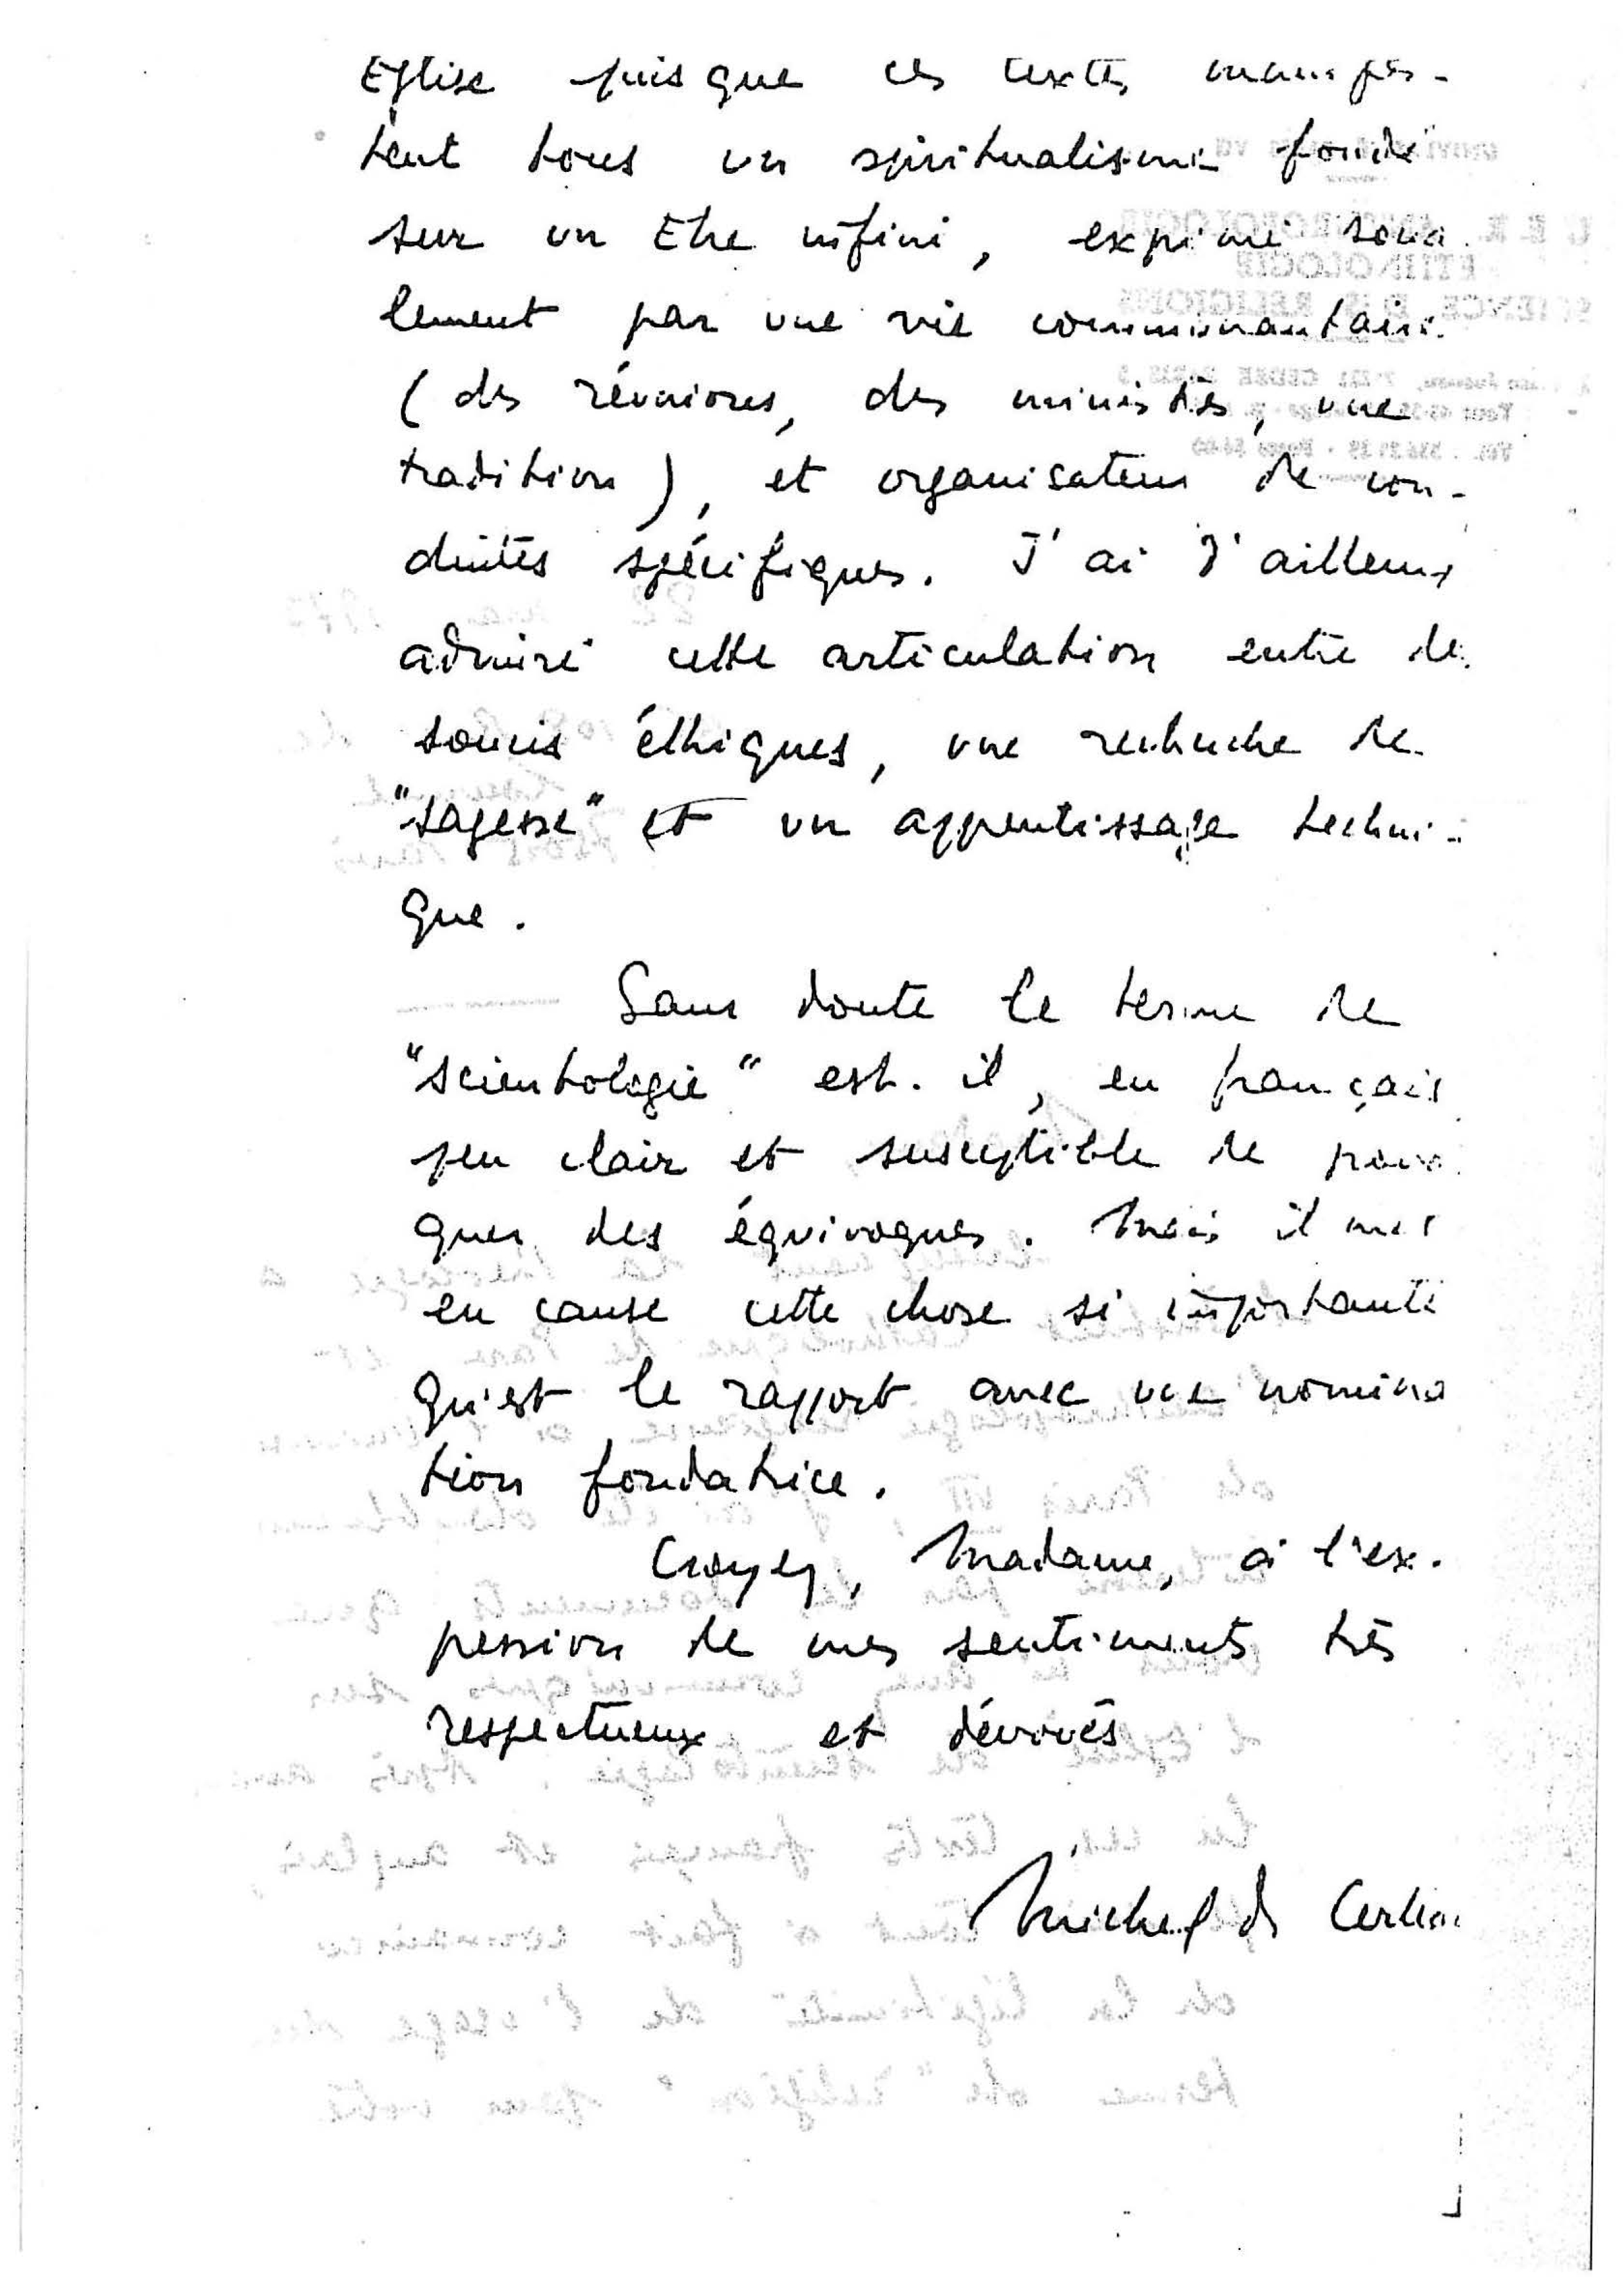 Eglise puisque ces textes manifes-
tent tous un spiritualisme fondé
sur un Etre infini, exprimé socia
lement par une vie communautaire
(des réunions, des ministres, une
tradition), et organisateur de con-
duites spécifiques. J'ai d'ailleurs
admiré cette articulation entre des
soucis éthiques, une recherche de
"sagesse" et un apprentissage techni-
que.
Sans doute le terme de
"scientologie" est-il, en français
peu clair et susceptible de prov
quer des équivoques. Mais il met
en cause cette chose si importante
qu'est le rapport avec une nomina
tion fondatrice.
Croyez, Madame, à l'ex-
pression de mes sentiments très
respectueux et dévoués
Michel de Certeau